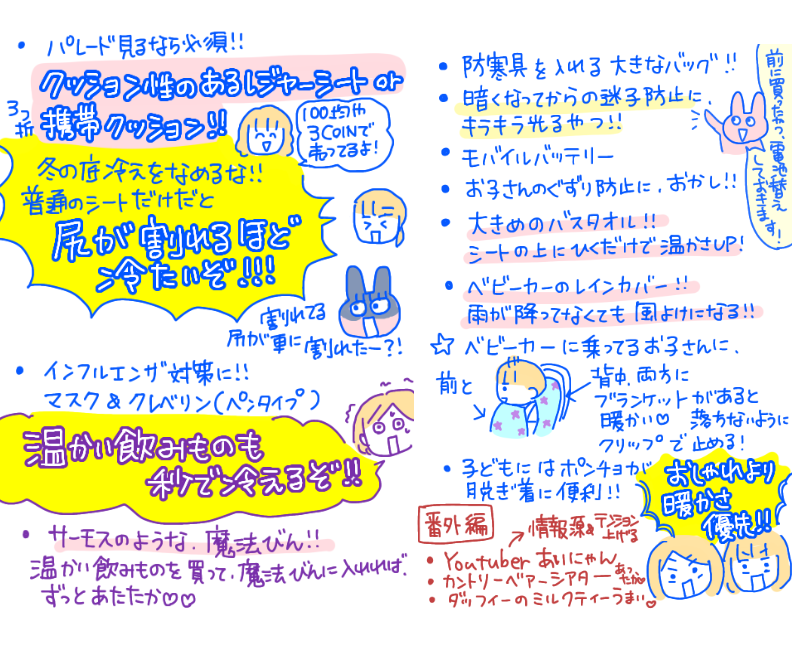 • パレード見るなら必須!!
クッション性のあるレジャーシート or
携帯クッション!!
3つ折
100均や
3COINで
売ってるよ!
冬の底冷えをなめるな!!
普通のシートだけだと
尻が割れるほど
冷たいぞ!!!
割れてる
尻が更に割れたー?!
• インフルエンザ対策に!!
マスク&クレベリン(ペンタイプ)
温かい飲みものも
秒で冷えるぞ!!
• サーモスのような、魔法びん!!
温かい飲みものを買って、魔法びんに入れれば、
ずっとあたたか♡♡
• 防寒具を入れる大きなバッグ!!
• 暗くなってからの迷子防止に、
キラキラ光るやつ!!
前に買ったやつ、電池替え
しておきます!
• モバイルバッテリー
• お子さんのぐずり防止に、おかし!!
• 大きめのバスタオル!!
シートの上にひくだけで温かさUP!
• ベビーカーのレインカバー!!
雨が降ってなくても風よけになる!!
☆ ベビーカーに乗ってるお子さんに、
前と
背中、両方に
ブランケットがあると
暖かい♡ 落ちないように
クリップで止める!
• 子どもにはポンチョが
脱ぎ着に便利!!
おしゃれより
暖かさ
優先!!
番外編
情報源&テンション
上げる
• Youtuber あいにゃん
• カントリーベアーシアター あったか♡
• ダッフィーのミルクティーうまい♡